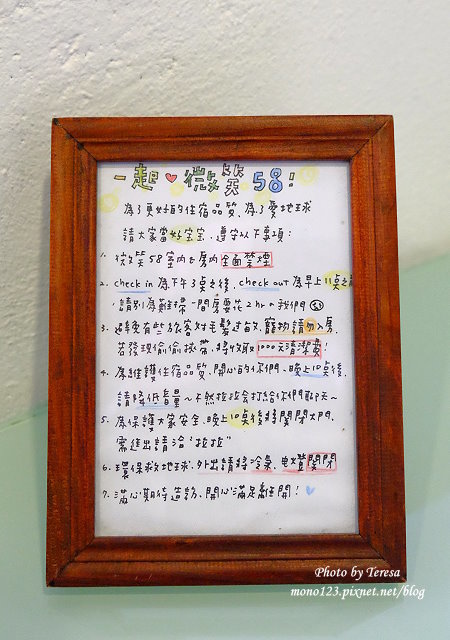 一起♥微笑58:
為了更好的住宿品質、為了愛地球
請大家當好宝宝、遵守以下事項:
1. 微笑58室內及房內全面禁煙
2. check in 為下午3点之後, check out 為早上11点之前
請別為難掃一間房要花2hr的我們
3. 過後有些旅客對毛髮過敏,寵物請勿入房,
若發現偷偷挾帶、將收取1000元清潔費!
4. 為維護住宿品質、開心的你們、晚上10点後,
請降低音量~不然拉拉会打給你們聊天~
5. 為保護大家安全、晚上10点後將關閉大門,
需進出請洽"拉拉"
6. 環保救地球、外出請將冷氣、电燈關閉
7. 滿心期待造訪、開心滿足離開!
Photo by Teresa
mono123.pixnet.net/blog